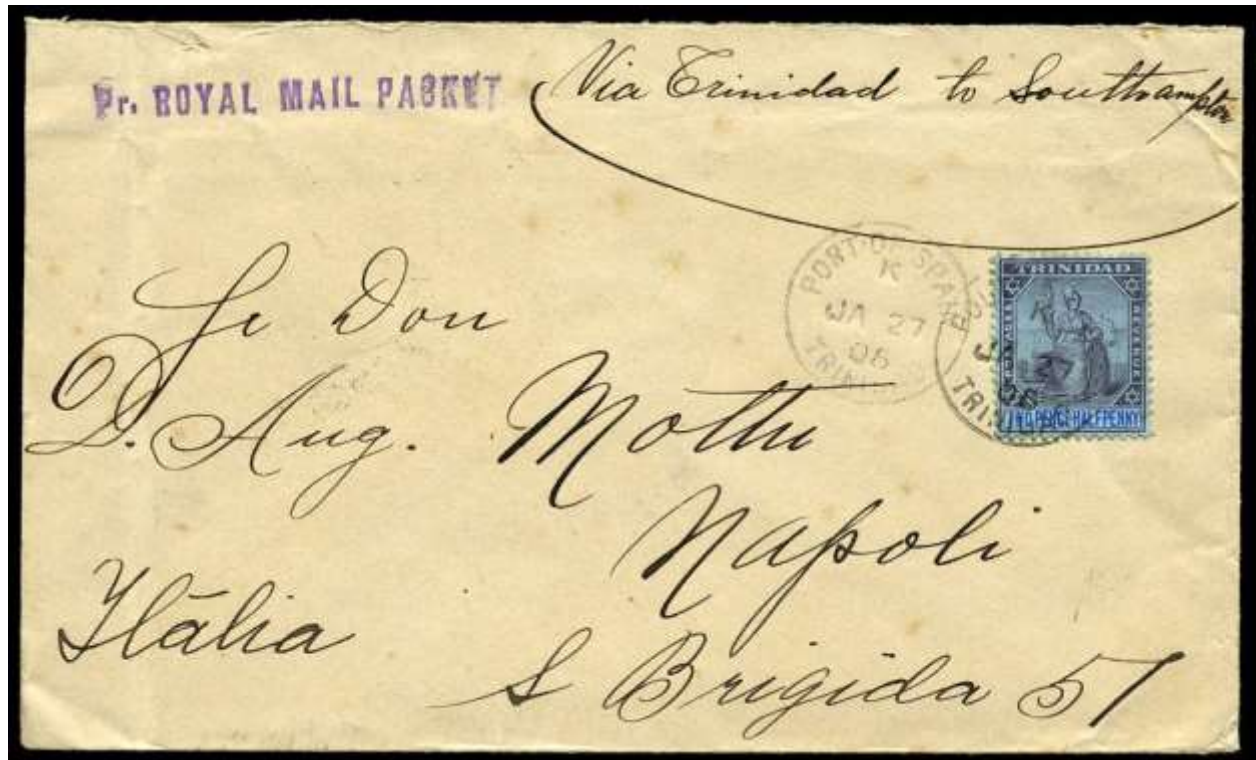 Pr. ROYAL MAIL PACKET
Via Trinidad to Southampton
PORT-OF-SPAIN
K
JA 27
06
TRINIDAD
TRINIDAD
POSTAGE
REVENUE
TWO PENCE HALFPENNY
27
TRINI
Se Don
D. Aug. Mottu
Napoli
Itália
S Brigida 51